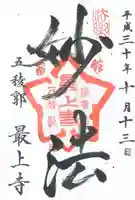 平成三十年十月十三日
妙法
五稜郭 最上寺